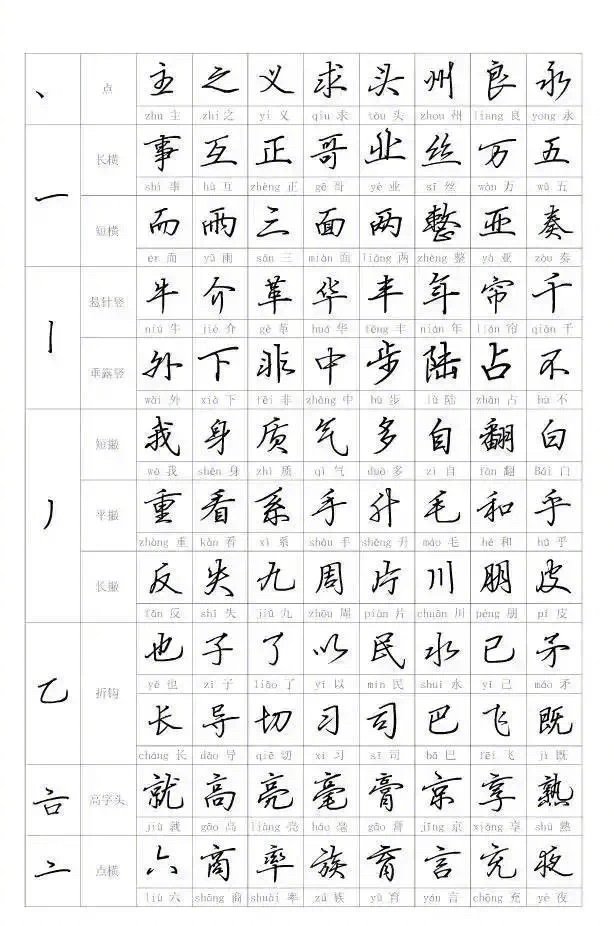 、 点 主 之 义 求 头 州 良 永
zhu 主 zhi 之 yi 义 qiu 求 tóu 头 zhou 州 liang 良 yong 永
一 长横 事 互 正 哥 业 丝 万 五
shì 事 hù 互 zhèng 正 gē 哥 yè 业 sī 丝 wàn 万 wǔ 五
短横 而 雨 三 面 两 整 亚 奏
ér 而 yǔ 雨 sān 三 miàn 面 liǎng 两 zhěng 整 yà 亚 zòu 奏
丨 悬针竖 牛 介 革 华 丰 年 帘 千
niú 牛 jiè 介 gé 革 huá 华 fēng 丰 nián 年 lián 帘 qiān 千
垂露竖 外 下 非 中 步 陆 占 不
wài 外 xià 下 fēi 非 zhōng 中 bù 步 lù 陆 zhān 占 bù 不
丿 短撇 我 身 质 气 多 自 翻 白
wǒ 我 shēn 身 zhì 质 qì 气 duō 多 zì 自 fān 翻 Bái
平撇 重 看 系 手 升 毛 和 乎
zhòng 重 kàn 看 xì 系 shǒu 手 shēng 升 máo 毛 hé 和 hū 乎
长撇 反 失 九 周 片 川 朋 皮
fǎn 反 shī 失 jiǔ 九 zhōu 周 piàn 片 chuān 川 péng 朋 pí 皮
乙 折钩 也 子 了 以 民 水 已 矛
yě 也 zǐ 子 liǎo 了 yǐ 以 mín 民 shuǐ 水 yǐ 已 máo 矛
长 导 切 习 司 巴 飞 既
cháng 长 dǎo 导 qiē 切 xí 习 sī 司 bā 巴 fēi 飞 jì 既
高字头 就 高 亮 毫 膏 京 享 熟
jiù 就 gāo 高 liàng 亮 háo 毫 gāo 膏 jīng 京 xiǎng 享 shú 熟
亠 点横 六 商 率 族 育 言 充 夜
liù 六 shāng 商 shuài 率 zú 族 yù 育 yán 言 chōng 充 yè 夜